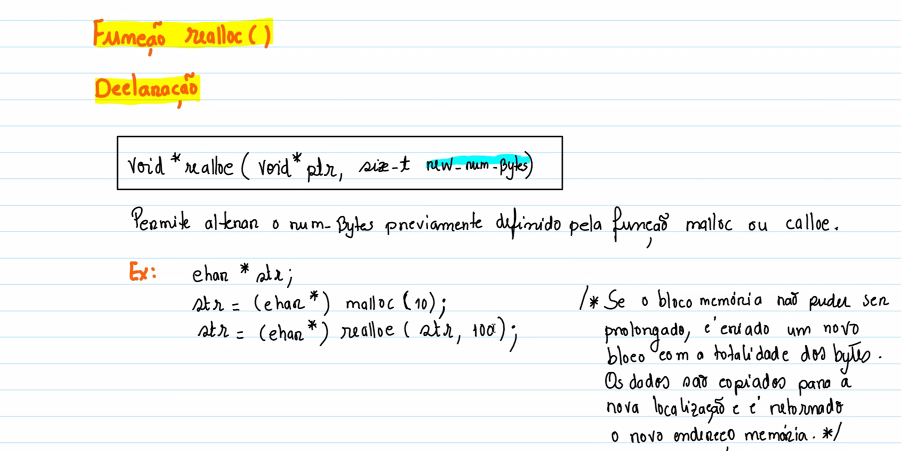 Função realloc()
Declaração
void* realloc ( void* ptr, size-t new-num-Bytes)
Permite alterar o num-Bytes previamente definido pela função malloc ou calloc.
Ex: char * str;
str = (char*) malloc (10);
str = (char*) realloc ( str, 100);
/* Se o bloco memória não puder ser
prolongado, é criado um novo
bloco com a totalidade dos bytes.
Os dados são copiados para a
nova localização e é retornado
o novo endereço memória. */